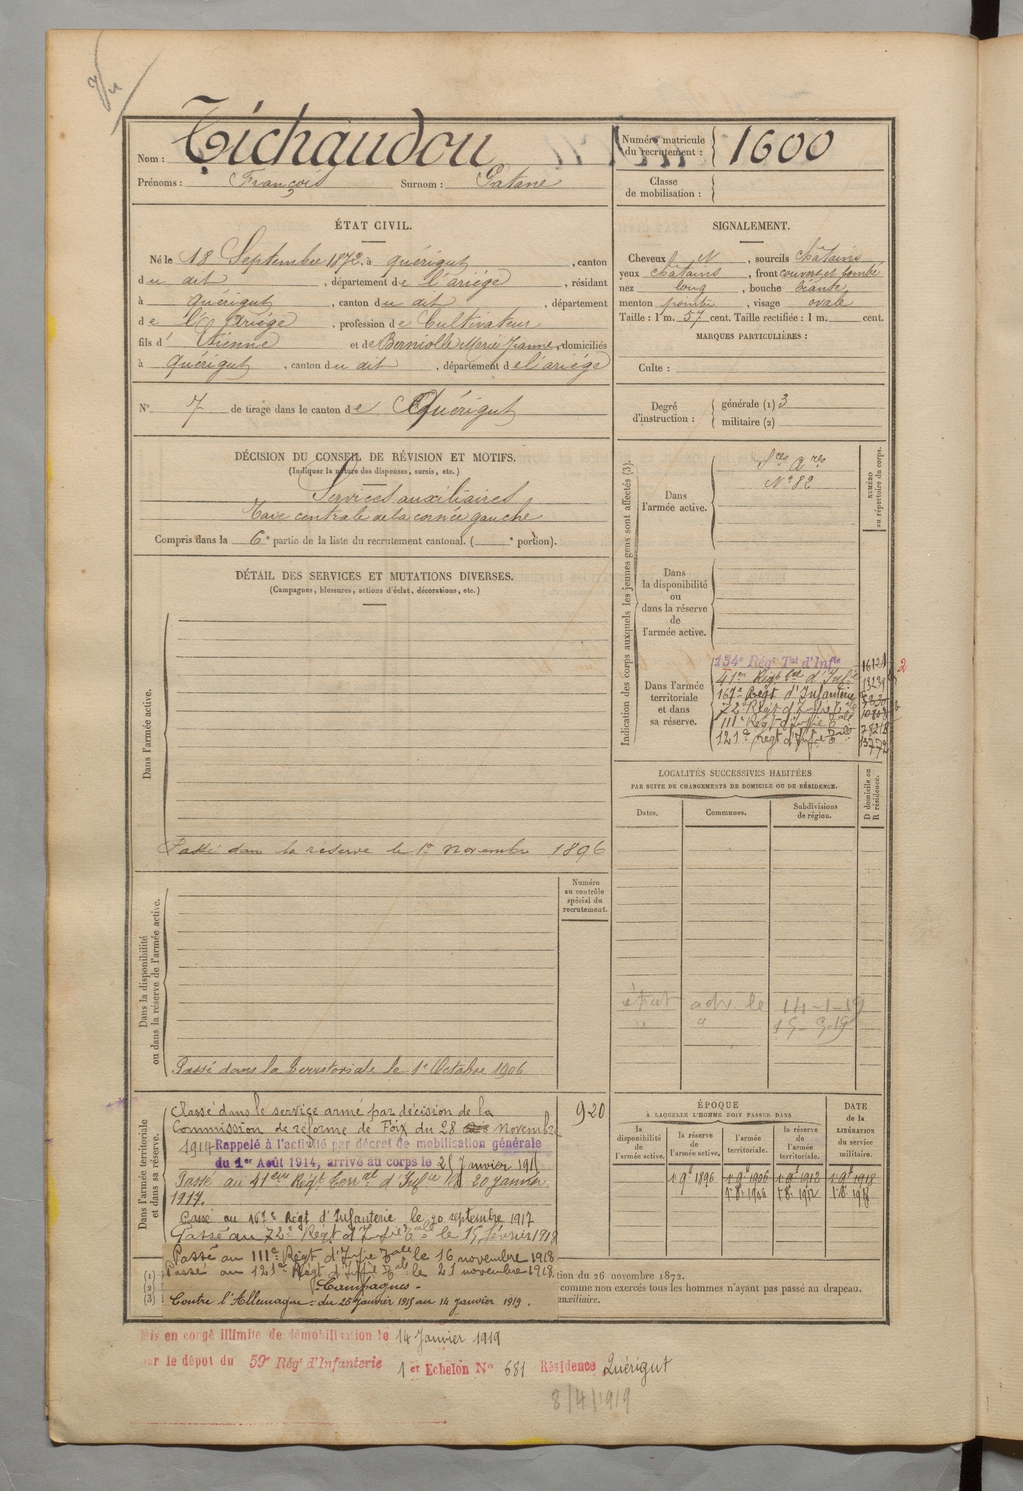 Nom : Tichaudou
Prénoms : François Surnom : Satane
Numéro matricule du recrutement : 1600
Classe de mobilisation :
ÉTAT CIVIL.
Né le 18 Septembre 1872, à Quérigut, canton
du dit, département de l'ariége, résidant
à Quérigut, canton du dit, département
de l'Ariége, profession de Cultivateur
fils d' Etienne et de Berniolle Marie Jeanne, domiciliés
à Quérigut, canton du dit, département de l'ariége
N° 7 de tirage dans le canton de Quérigut
SIGNALEMENT.
Cheveux N, sourcils châtains
yeux châtains, front couvert et bombé
nez long, bouche béante,
menton pointu, visage ovale
Taille : 1 m. 57 cent. Taille rectifiée : 1 m. cent.
MARQUES PARTICULIÈRES :
Culte :
Degré d'instruction : générale (1) 3
militaire (2)
DÉCISION DU CONSEIL DE RÉVISION ET MOTIFS.
(Indiquer la nature des dispenses, sursis, etc.)
Services auxiliaires
Taie centrale de la cornée gauche
Compris dans la 6e partie de la liste du recrutement cantonal. ( e portion).
DÉTAIL DES SERVICES ET MUTATIONS DIVERSES.
(Campagnes, blessures, actions d'éclat, décorations, etc.)
Dans l'armée active.
Passé dans la réserve le 1er novembre 1896
Dans la disponibilité
ou dans la réserve de l'armée active.
Numéro
au contrôle
spécial du
recrutement.
Passé dans la territoriale le 1er Octobre 1906
Dans l'armée territoriale
et dans sa réserve.
Classé dans le service armé par décision de la
Commission de réforme de Foix du 28 novembre
1914 Rappelé à l'activité par décret de mobilisation générale
du 1er Août 1914, arrivé au corps le 25 Janvier 1915
Passé au 41ème Régt Terral d'Infie le 20 janvier
1917.
Passé au 167e Régt d'Infanterie le 20 septembre 1917
Passé au 72e Régt d'Infie Tale le 15 février 1918
Passé au 111e Régt d'Infie Tale le 16 novembre 1918
Passé au 121e Régt d'Infie Tale le 21 novembre 1918.
Campagnes
Contre l'Allemagne : du 25 janvier 1915 au 14 janvier 1919.
920
(1)
(2)
(3)
tion du 26 novembre 1872.
comme non exercés tous les hommes n'ayant pas passé au drapeau.
auxiliaire.
Indication des corps auxquels les jeunes gens sont affectés (3).
NUMÉRO
au répertoire du corps.
Dans
l'armée active.
Sces Ares
N° 82
Dans
la disponibilité
ou
dans la réserve
de
l'armée active.
Dans l'armée
territoriale
et dans
sa réserve.
134e Régt Tal d'Infie
41me Régt tal d'Infie
167e Régt d'Infanterie
72e Régt d'Infie Tale
111e Régt d'Infie Tale
121e Régt d'Infie Tale
2
LOCALITÉS SUCCESSIVES HABITÉES
PAR SUITE DE CHANGEMENTS DE DOMICILE OU DE RÉSIDENCE.
D domicile ou
R résidence.
Dates. Communes. Subdivisions de région.
14-1-19
ÉPOQUE
À LAQUELLE L'HOMME DOIT PASSER DANS
la disponibilité de l'armée active. la réserve de l'armée active. l'armée territoriale. la réserve de l'armée territoriale.
DATE
de la
LIBÉRATION
du service
militaire.
1 9e 1896 1 9e 1906 1 9e 1912 1 9e 1918
1.8.1906 1.8.1912 1.8.1918
Mis en congé illimité de démobilisation le 14 Janvier 1919
par le dépôt du 59e Régt d'Infanterie 1er Echelon N° 681 Résidence Quérigut
8/4/1919